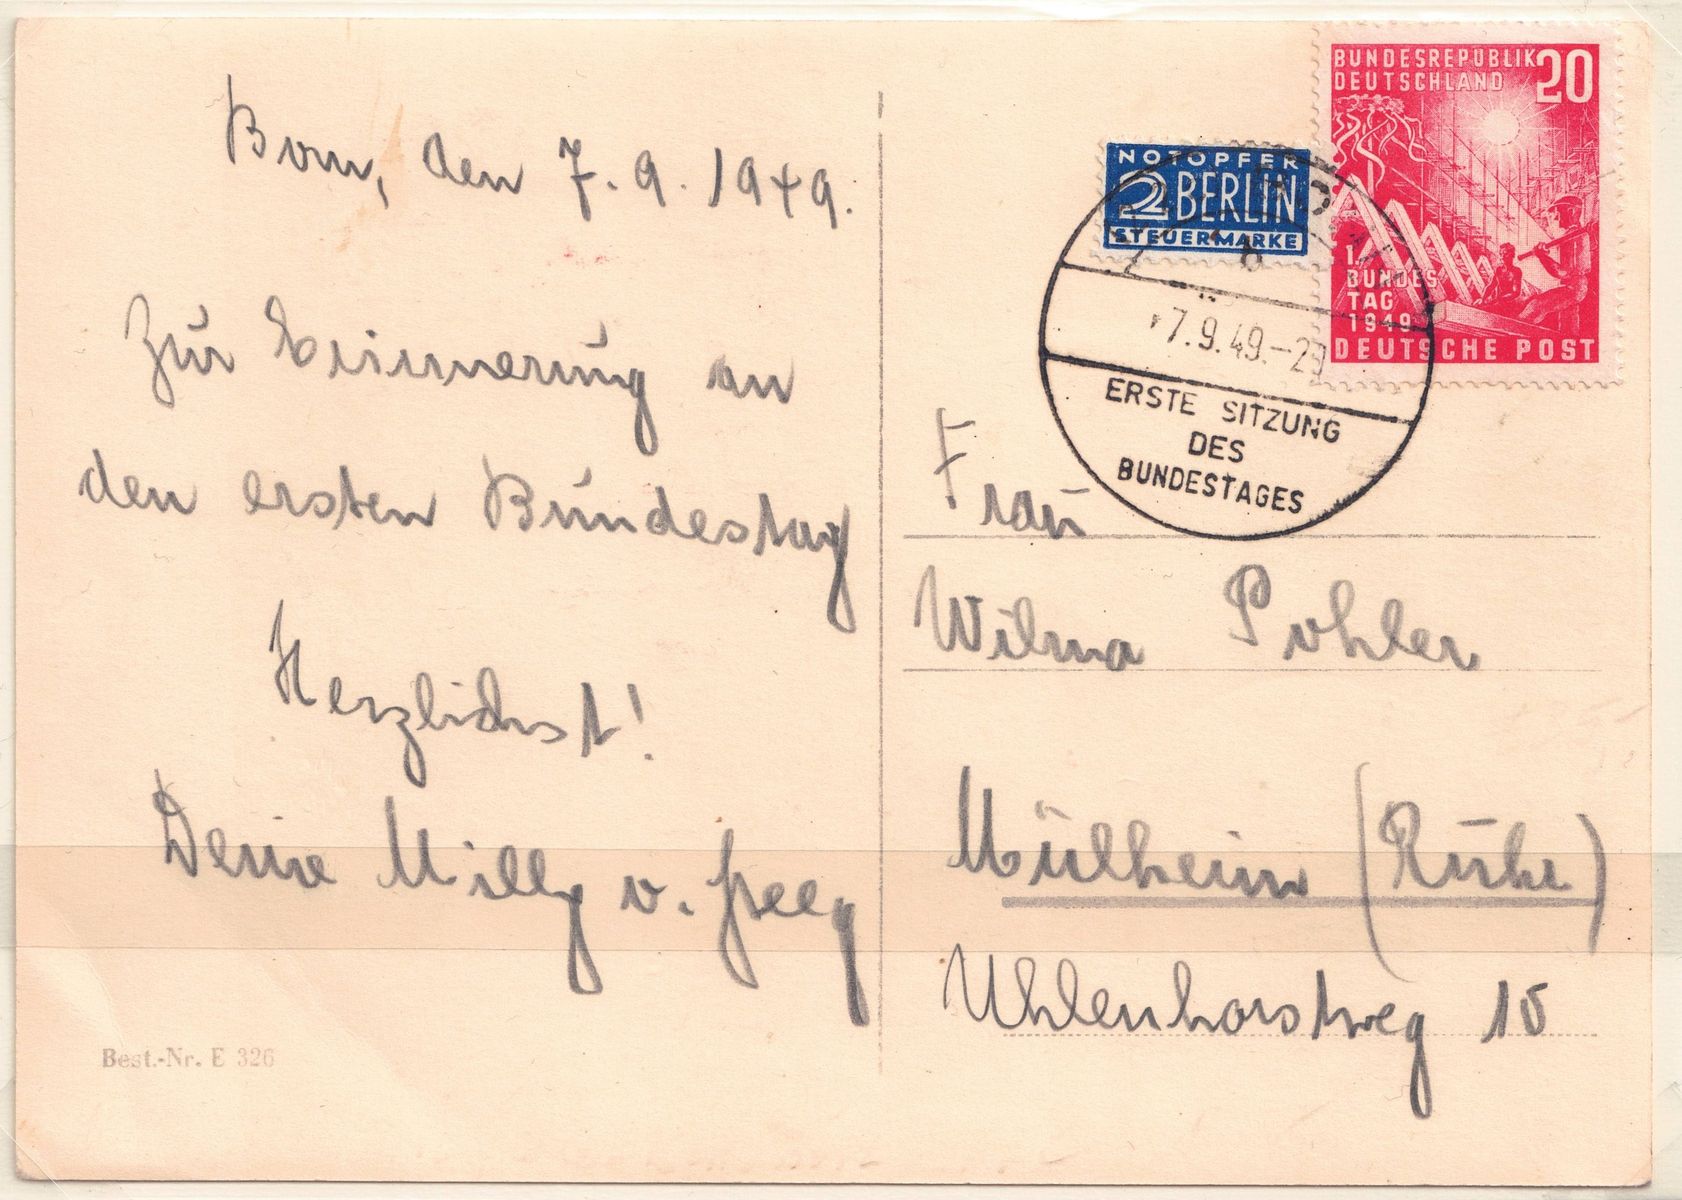 Bonn, den 7.9.1949.
Zur Erinnerung an
den ersten Bundestag
Herzlichst!
Deine Milly v.
Best.-Nr. E 326
BUNDESREPUBLIK 20
DEUTSCHLAND
1.
BUNDES
TAG
1949
DEUTSCHE POST
NOTOPFER
2 BERLIN
STEUERMARKE
b
7.9.49.-20
ERSTE SITZUNG
DES
BUNDESTAGES
Frau
Wilma Pohler
Mülheim (Ruhr)
Uhlenhorstweg 15